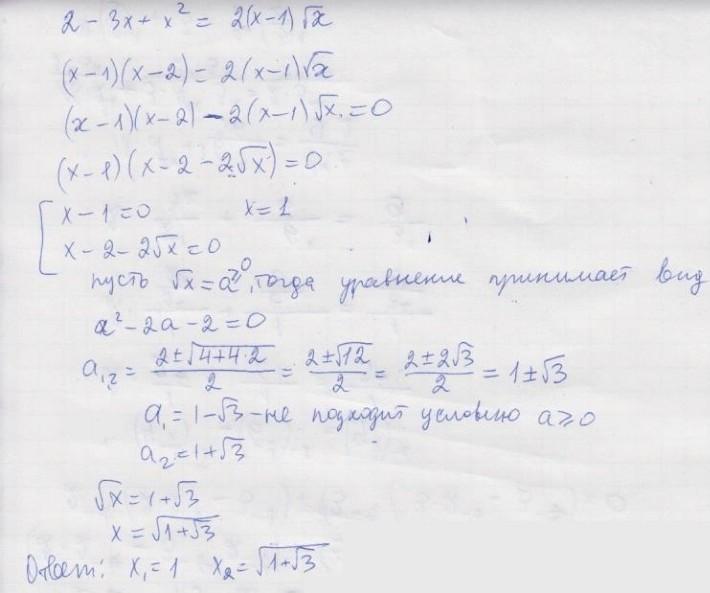 2 - 3x + x² = 2(x-1)√x
(x-1)(x-2) = 2(x-1)√x
(x-1)(x-2) - 2(x-1)√x = 0
(x-1)(x-2-2√x) = 0
[ x-1=0 x=1
x-2-2√x=0
пусть √x=a≥0, тогда уравнение принимает вид
a²-2a-2=0
a₁,₂ = (2±√(4+4·2))/2 = (2±√12)/2 = (2±2√3)/2 = 1±√3
a₁=1-√3-не подходит условию a≥0
a₂=1+√3
√x=1+√3
x=√(1+√3)
Ответ: x₁=1 x₂=√(1+√3)